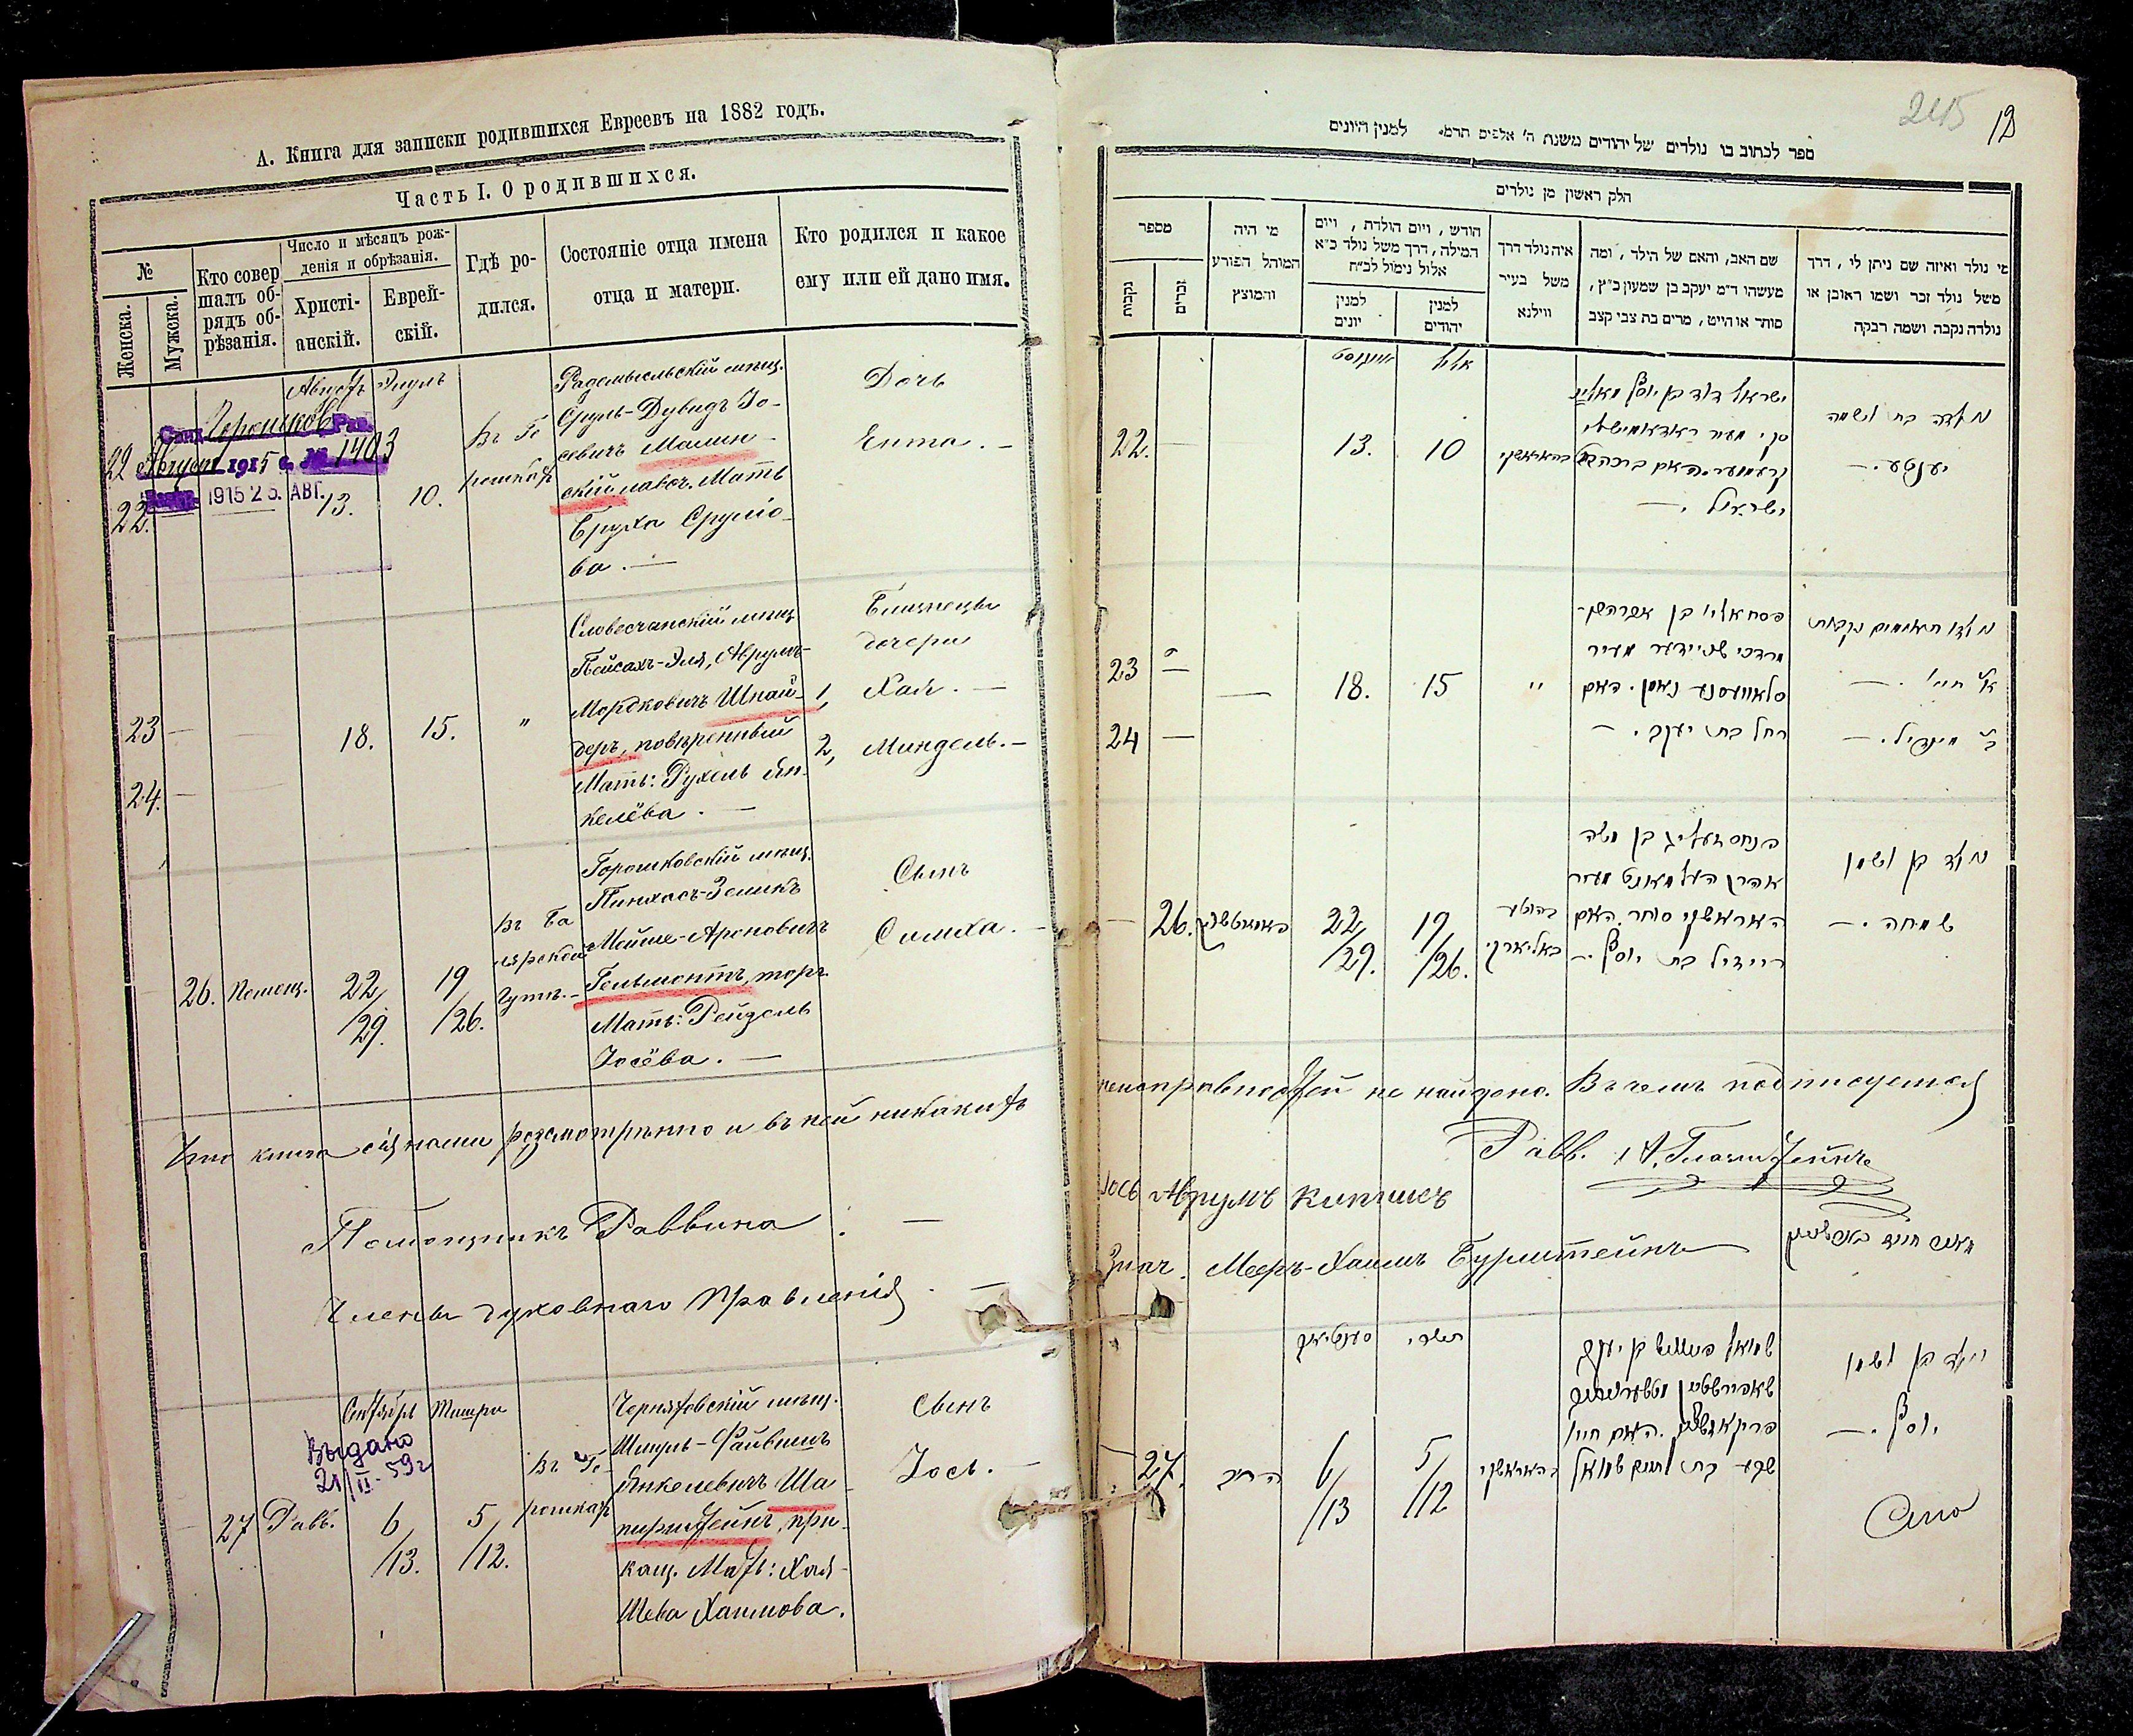 А. Книга для записки родившихся Евреевъ на 1882 годъ.
Часть I. О родившихся.
№
Женска.
Мужска.
Кто совер
шалъ об-
рядъ об-
рѣзанія.
Число и мѣсяцъ рож-
денія и обрѣзанія.
Христі-
анскій.
Еврей-
скій.
Гдѣ ро-
дился.
Состояніе отца имена
отца и матери.
Кто родился и какое
ему или ей дано имя.
Августъ Элулъ
22 Августа 1915 г. № 1403
1915 25. АВГ.
22. 13. 10.
Въ Го
рошкахъ
Радомысльскій мѣщ.
Сруль-Дувидъ Іо-
севичъ Малин-
скій, лавоч. Мать
Бруха Срулио-
ва. —
Дочь
Ента. —
23 — 18. 15. "
24. —
Словечанскій мѣщ.
Пейсахъ-Эля, Аврумъ-
Мордковичъ Шнай-
деръ, повѣренный
Мать: Рухель Ян-
келёва. —
Близнецы
дочери
1, Хая. —
2, Миндель. —
— 26. Помощ. 22/29. 19/26.
Въ Га
ярской
Гутѣ. —
Горошковскій мѣщ.
Пинхасъ-Зеликъ
Мойше-Ароновичъ
Гельмонтъ, торг.
Мать: Рейзель
Іосёва. —
Сынъ
Симха. —
Что книга сія нами разсмотрѣнно и въ ней никакихъ
Помощникъ Раввина : —
Члены духовнаго Правленія . —
Октябрь Тишри
Выдано
21/II-59г
— 27 Равв. 6/13. 5/12.
Въ Го-
рошкахъ
Черняховскій мѣщ.
Шмуль-Файвишъ
Янкелевичъ Ша-
пирштейнъ, при-
кащ. Мать: Хая-
Шева Хаимова.
Сынъ
Іось. —
245 12
ספר לכתוב בו נולדים של יהודים משנת ה' אלפים תרמ״ למנין היונים
חלק ראשון מן נולדים
מספר
נקבות
זכרים
מי היה
המוהל הפורע
והמוצץ
חודש, ויום הולדת, ויום
המילה, דרך משל נולד כ״א
אלול נימול לכ״ח
למנין
יונים
למנין
יהודים
איה נולד דרך
משל בעיר
ווילנא
שם האב, והאם של הילד, ומה
מעשהו ד״מ יעקב בן שמעון כ״ץ,
סוחר או חייט, מרים בת צבי קצב
מי נולד ואיזה שם ניתן לו, דרך
משל נולד זכר ושמו ראובן או
נולדה נקבה ושמה רבקה
אויגוסט אלול
22. — 13. 10
ישראל דוד בן יוסף
ישראל. —
נולדה בת ושמה
יענטע. —
23 —
— 18. 15 "
24 —
פסח אליי בן אברהם-
מרדכי שניידער מעיר
רחל בת יעקב. —
נולדו תאומים נקבות
א' חיי'. —
ב' מינדיל. —
— 26. 22/29. 19/26.
פנחס זעליג בן משה
אהרן העלמאנט מעיר
האראשקי סוחר. האם
ריידיל בת יוסף. —
נולד בן ושמו
שמחה. —
неисправностей не найдено. Въ чемъ подписуемся
Равв. А. Глазштейнъ
Іось Аврумъ Кипнисъ
Знач. Мееръ-Хаимъ Бурштейнъ
תשרי
— 27. הרב 6/13 5/12 האראשקי
שמואל פייוויש בן יעקב
שבע בת חיים שמואל
נולד בן ושמו
יוסף. —